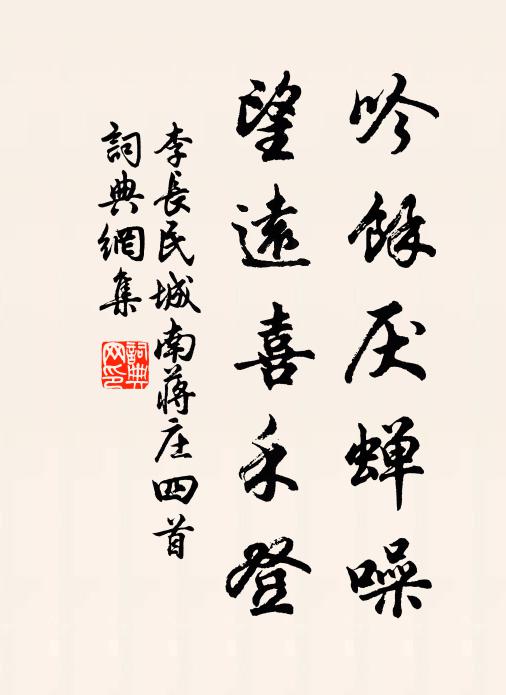 吟餘厌蝉噪
望遠喜禾登
李長民城南蒋庄四首
詞典網集
詞典网印